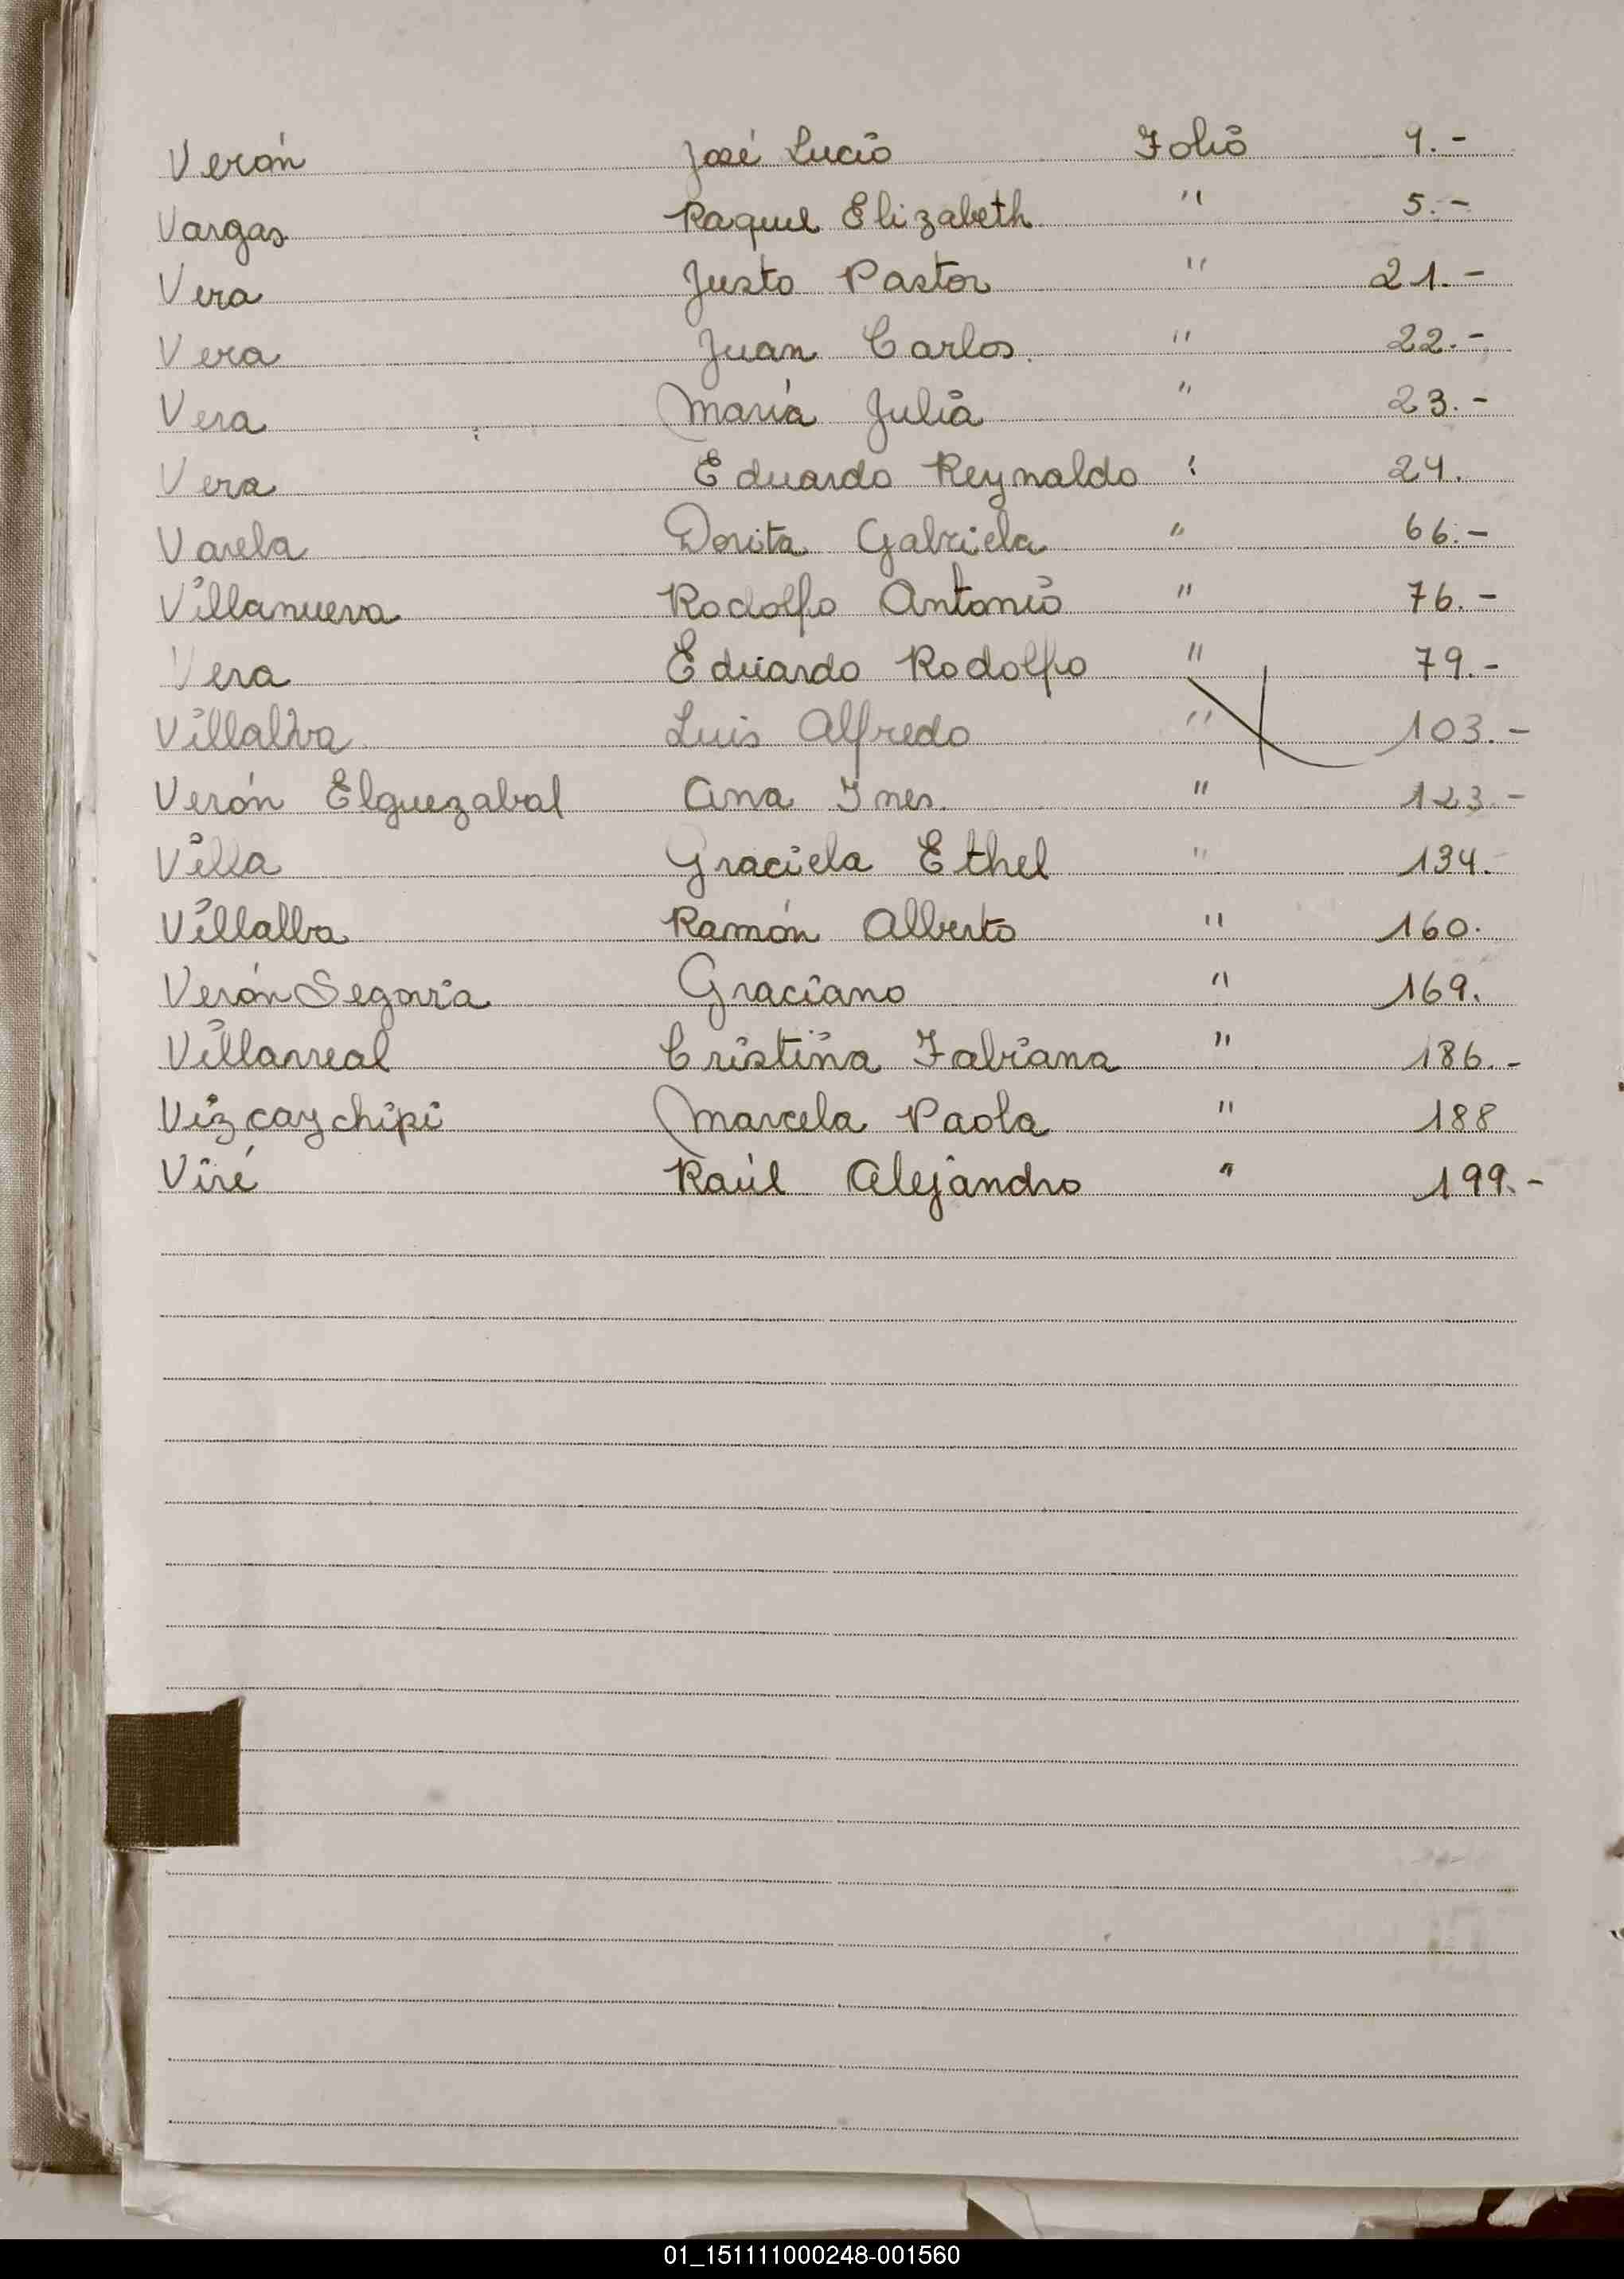 Verón José Lucio Folio 4.-
Vargas Raquel Elizabeth " 5.-
Vera Justo Pastor " 21.-
Vera Juan Carlos. " 22.-
Vera María Julia " 23.-
Vera Eduardo Reynaldo " 24.
Varela Dorita Gabriela " 66.-
Villanueva Rodolfo Antonio " 76.-
Vera Eduardo Rodolfo " 79.-
Villalva Luis Alfredo " 103.-
Verón Elguezabal Ana Ines. " 123.-
Villa Graciela Ethel " 134.-
Villalba Ramón Alberto " 160.
Verón Segovia Graciano " 169.
Villarreal Cristina Fabiana " 186.-
Vizcaychipi Marcela Paola " 188
Viré Raúl Alejandro " 199.-
01_151111000248-001560